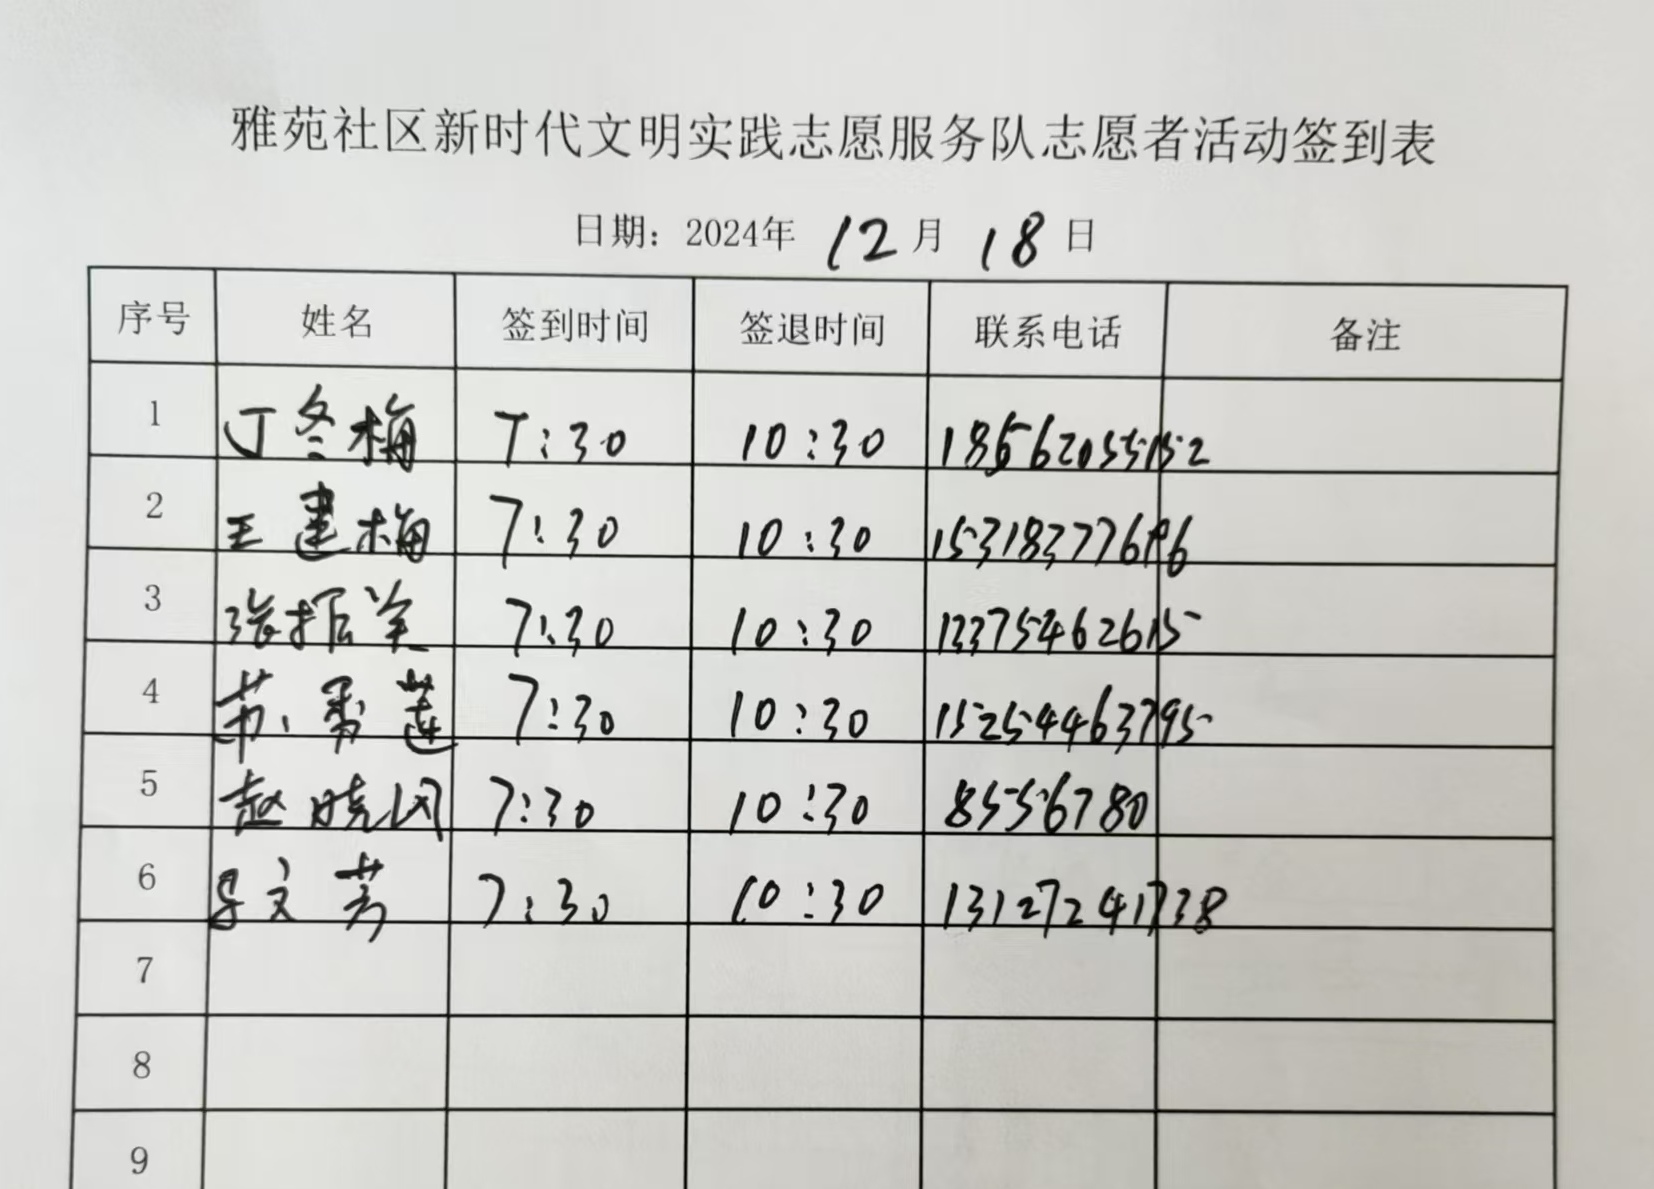 雅苑社区新时代文明实践志愿服务队志愿者活动签到表
日期：2024年 12 月 18 日
序号 姓名 签到时间 签退时间 联系电话 备注
1 丁冬梅 7:30 10:30
2 王建梅 7:30 10:30
3 张振兰 7:30 10:30 13375462615
4 苏秀莲 7:30 10:30 15254463795
5 赵晓风 7:30 10:30 8556780
6 文芳 7:30 10:30 13127241738
7
8
9